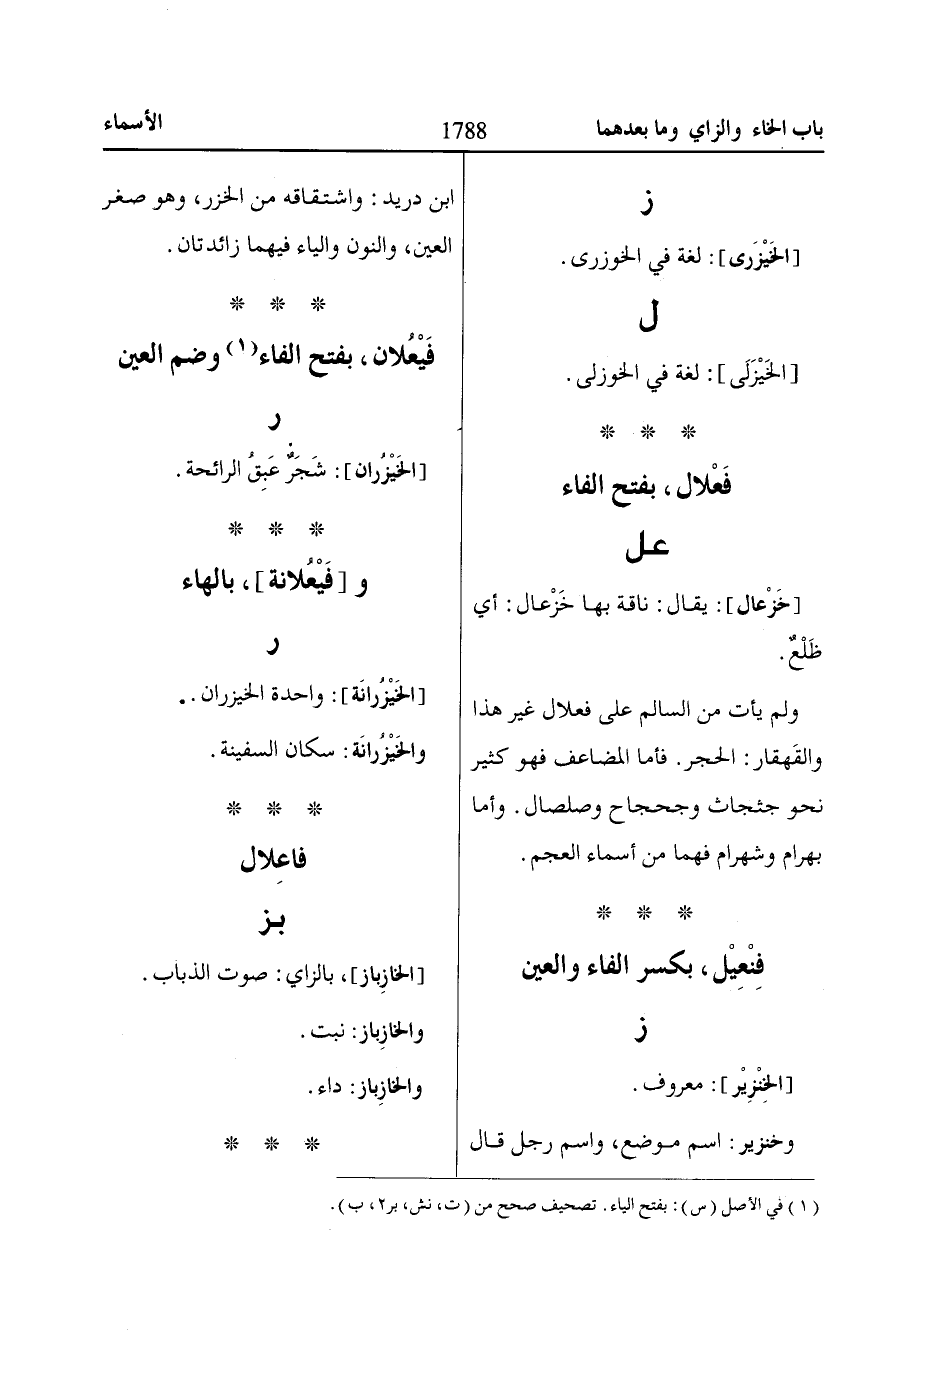 باب الخاء والزاي وما بعدهما
1788
الأسماء
ز
[الخَيْزَرى]: لغة في الخوزرى.
ل
[الخَيْزَلَى]: لغة في الخوزلى.
* * *
فَعْلال، بفتح الفاء
عل
[خَزْعال]: يقال: ناقة بها خَزْعال: أي
ظَلْعٌ.
ولم يأت من السالم على فعلال غير هذا
والقَهقار: الحجر. فأما المضاعف فهو كثير
نحو جثجاث وجحجاح وصلصال. وأما
بهرام وشهرام فهما من أسماء العجم.
* * *
فِنْعِيْل، بكسر الفاء والعين
ز
[الخِنْزِيْر]: معروف.
وخنزير: اسم موضع، واسم رجل قال
ابن دريد: واشتقاقه من الخزر، وهو صغر
العين، والنون والياء فيهما زائدتان.
* * *
فَيْعُلان، بفتح الفاء(١) وضم العين
ر
[الخَيْزُران]: شَجَرٌ عَبِقُ الرائحة.
* * *
و [فَيْعُلانة]، بالهاء
ر
[الخَيْزُرانَة]: واحدة الخيزران..
والخَيْزُرانَة: سكان السفينة.
* * *
فاعِلال
بز
[الخازِباز]، بالزاي: صوت الذباب.
والخازِباز: نبت.
والخازِباز: داء.
* * *
(١) في الأصل (س): بفتح الياء. تصحيف صحح من (ت، نش، بر٢، ب).